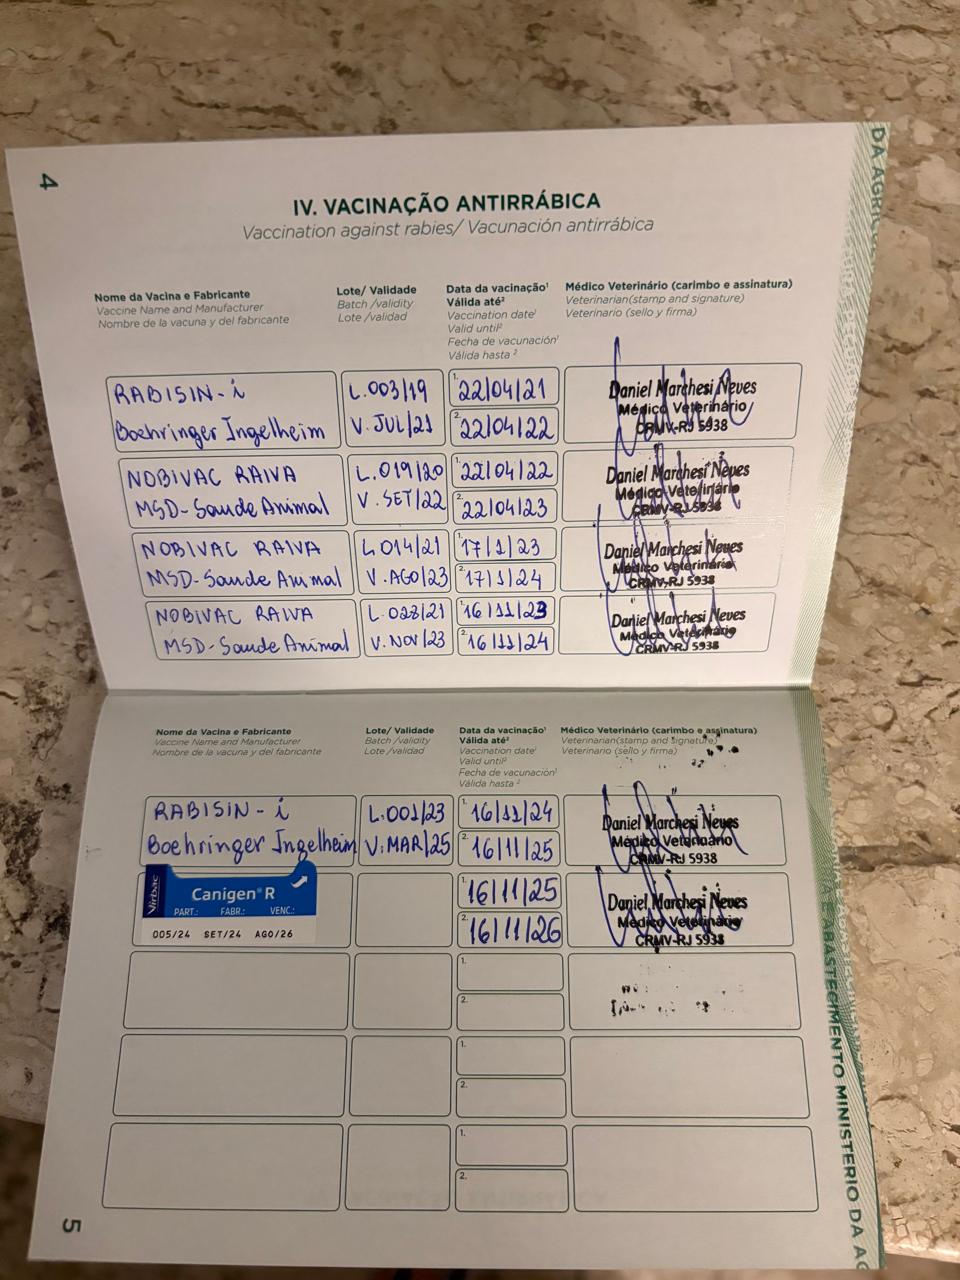 4
DA AGRIC
IV. VACINAÇÃO ANTIRRÁBICA
Vaccination against rabies/ Vacunación antirrábica
Nome da Vacina e Fabricante
Vaccine Name and Manufacturer
Nombre de la vacuna y del fabricante
Lote/ Validade
Batch /validity
Lote /validad
Data da vacinação¹
Válida até²
Vaccination date¹
Valid until²
Fecha de vacunación¹
Válida hasta ²
Médico Veterinário (carimbo e assinatura)
Veterinarian(stamp and signature)
Veterinario (sello y firma)
RABISIN-i
Boehringer Ingelheim
L.003/19
V. JUL/21
1. 22/04/21
2. 22/04/22
Daniel Marchesi Neves
Médico Veterinário
CRMV-RJ 5938
NOBIVAC RAIVA
MSD-Saude Animal
L.019/20
V. SET/22
1. 22/04/22
2. 22/04/23
Daniel Marchesi Neves
Médico Veterinário
CRMV-RJ 5938
NOBIVAC RAIVA
MSD-Saude Animal
L 014/21
V. AGO/23
1. 17/1/23
2. 17/1/24
Daniel Marchesi Neves
Médico Veterinário
CRMV-RJ 5938
NOBIVAC RAIVA
MSD-Saude Animal
L.028/21
V. NOV/23
1. 16/11/23
2. 16/11/24
Daniel Marchesi Neves
Médico Veterinário
CRMV-RJ 5938
Nome da Vacina e Fabricante
Vaccine Name and Manufacturer
Nombre de la vacuna y del fabricante
Lote/ Validade
Batch /validity
Lote /validad
Data da vacinação¹
Válida até²
Vaccination date¹
Valid until²
Fecha de vacunación¹
Válida hasta ²
Médico Veterinário (carimbo e assinatura)
Veterinarian(stamp and signature)
Veterinario (sello y firma)
RABISIN-i
Boehringer Ingelheim
L.001/23
V. MAR/25
1. 16/11/24
2. 16/11/25
Daniel Marchesi Neves
Médico Veterinário
CRMV-RJ 5938
Virbac
Canigen® R
PART.: FABR.: VENC.:
005/24 SET/24 AGO/26
1. 16/11/25
2. 16/11/26
Daniel Marchesi Neves
Médico Veterinário
CRMV-RJ 5938
1.
2.
1.
2.
1.
2.
ABASTECIMENTO MINISTERIO DA AG
5